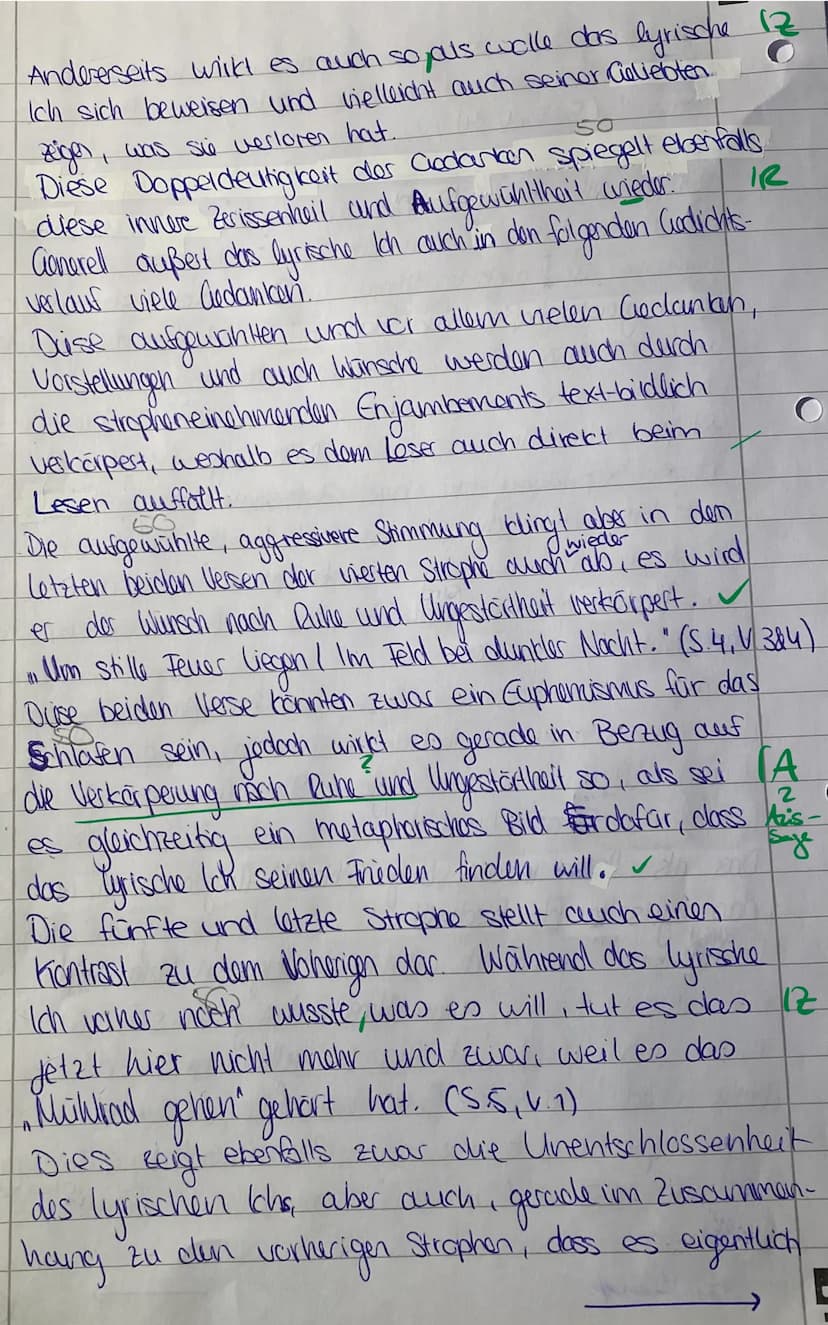 Andererseits wirkt es auch so, als wolle das lyrische IZ
Ich sich beweisen und vielleicht auch seiner Geliebten
zeigen, was sie verloren hat.
50
Diese Doppeldeutigkeit der Gedanken spiegelt ebenfalls
diese innere Zerissenheit und Aufgewühltheit wieder. IR
Generell äußert das lyrische Ich auch in den folgenden Gedichts-
verlauf viele Gedanken.
Diese aufgewühlten und vor allem vielen Gedanken,
Vorstellungen und auch Wünsche werden auch durch
die stropheneinehmenden Enjambements text-bildlich
verkörpert, weshalb es dem Leser auch direkt beim
Lesen auffällt.
60
Die aufgewühlte, aggressivere Stimmung klingt aber in den
letzten beiden Versen der vierten Strophe auch wieder ab, es wird
er der Wunsch nach Ruhe und Ungestörtheit verkörpert. ✓
"Um stille Feuer liegen / Im Feld bei dunkler Nacht." (S.4, V 3&4)
Diese beiden Verse könnten zwar ein Euphemismus für das
50
Schlafen sein, jedoch wirkt es gerade in Bezug auf
die Verkörperung nach Ruhe ? und Ungestörtheit so, als sei A
es gleichzeitig ein metaphorisches Bild dafür, dass ?
das lyrische Ich seinen Frieden finden will. ✓
Die fünfte und letzte Strophe stellt auch einen
Kontrast zu dem Voherign dar. Während das lyrische
Ich vorher noch wusste, was es will, tut es das IZ
jetzt hier nicht mehr und zwar, weil es das
"Mühlrad gehen" gehört hat. (S.5, V.1)
Dies zeigt ebenfalls zwar die Unentschlossenheit
des lyrischen Ichs, aber auch, gerade im Zusammen-
hang zu den vorherigen Strophen, dass es eigentlich